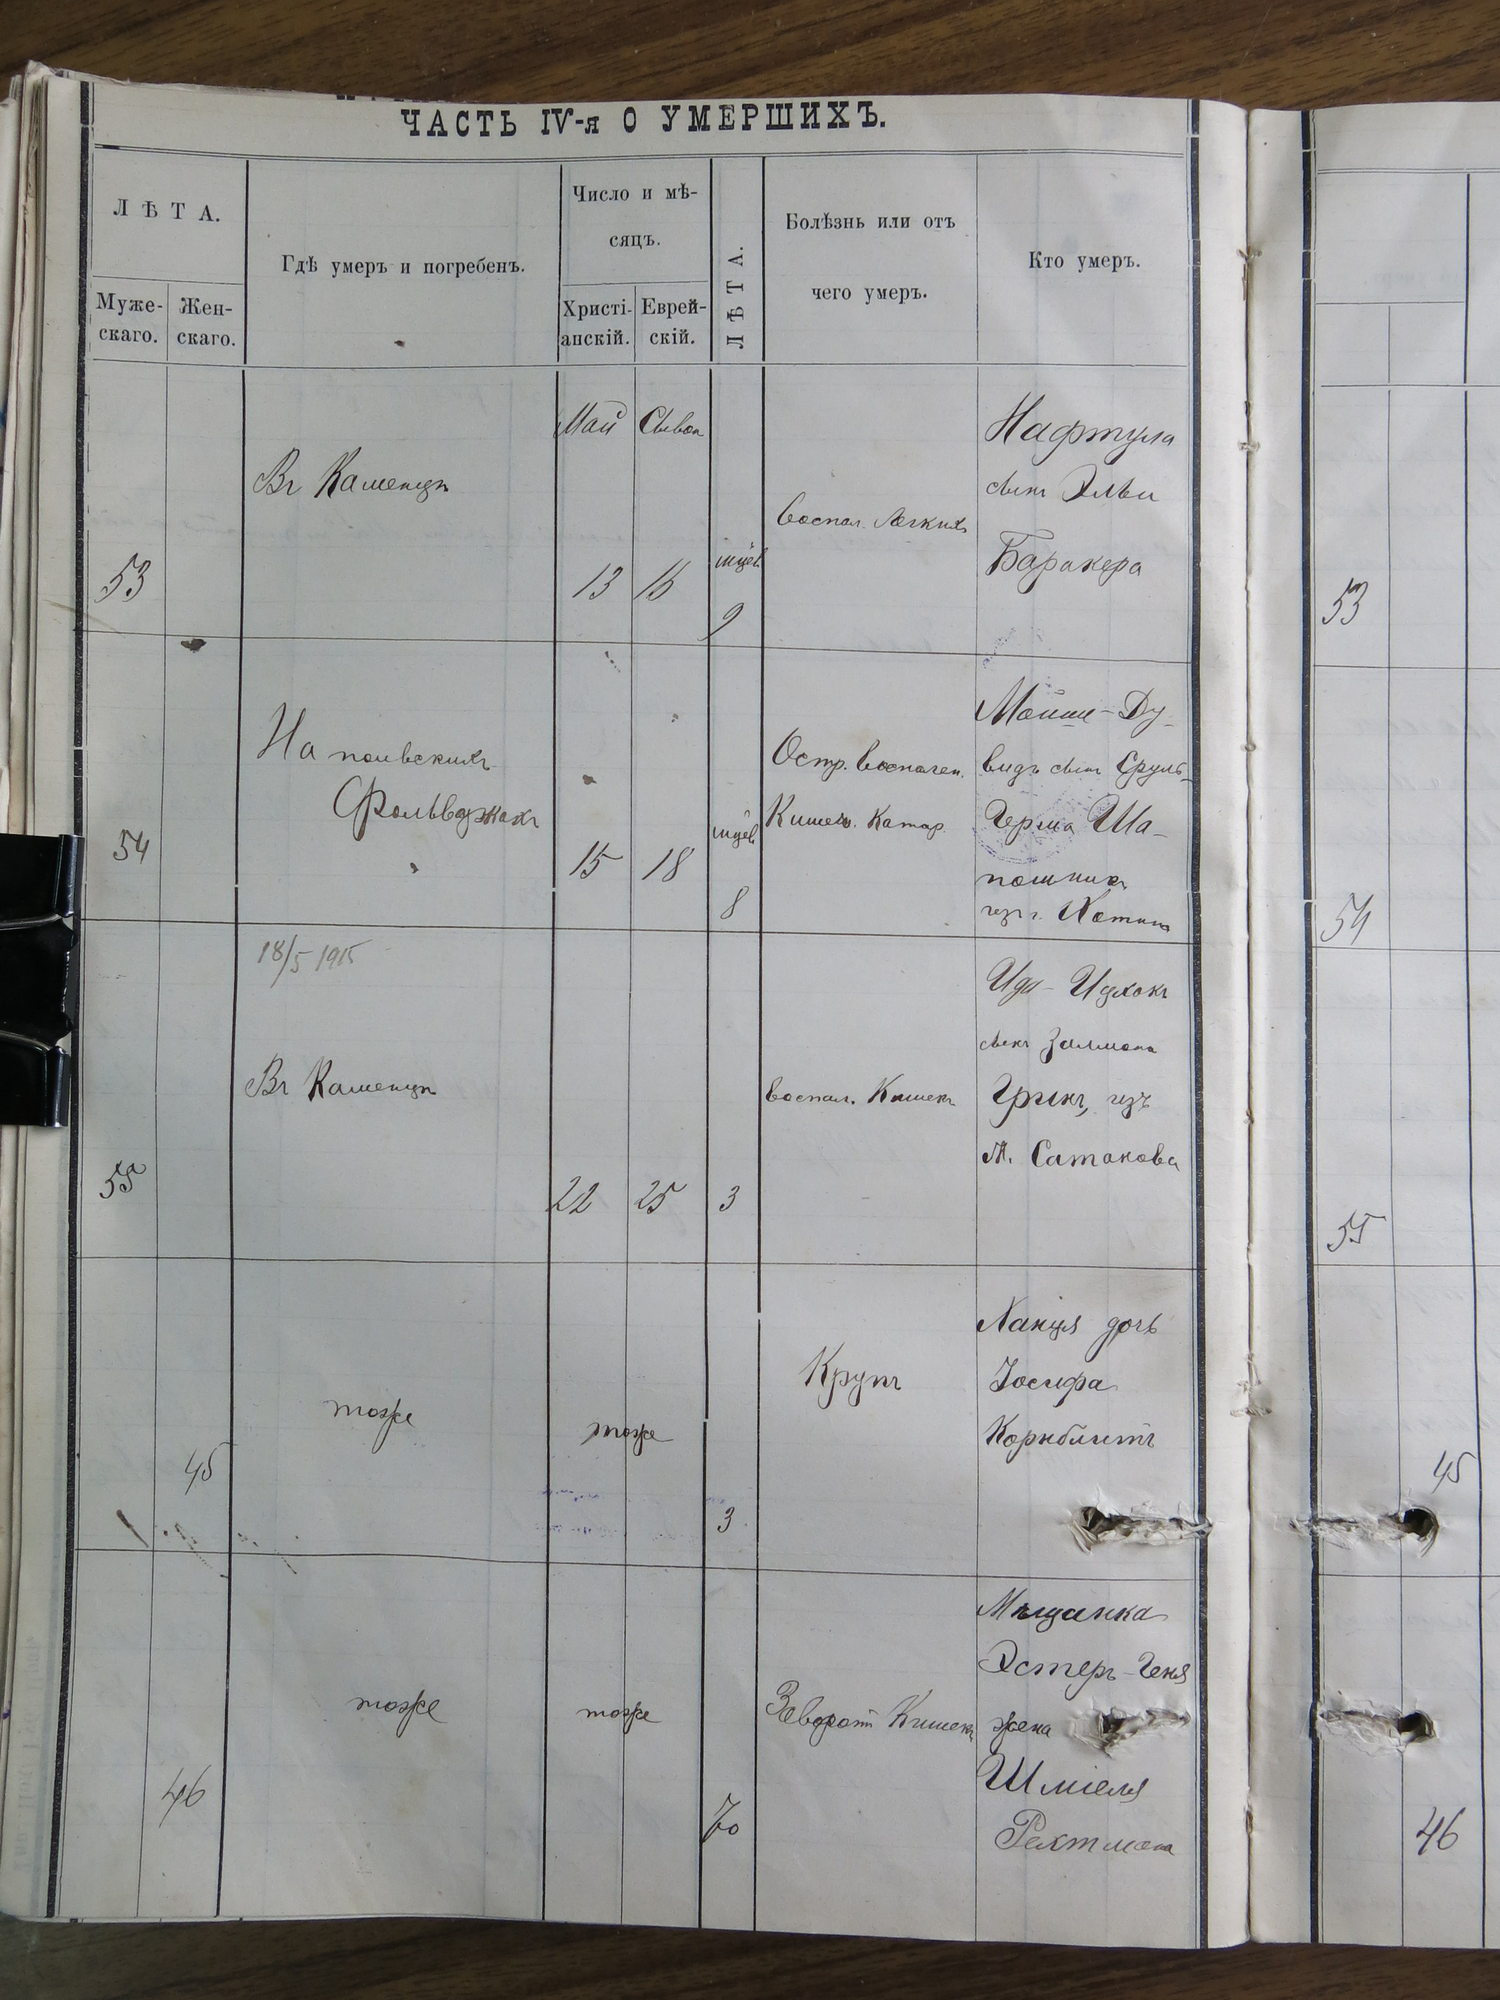 ЧАСТЬ IV-я О УМЕРШИХЪ.
ЛѢТА.
Муже-
скаго.
Жен-
скаго.
Гдѣ умеръ и погребенъ.
Число и мѣ-
сяцъ.
Христі-
анскій.
Еврей-
скій.
ЛѢТА.
Болѣзнь или отъ
чего умеръ.
Кто умеръ.
53
Въ Каменцѣ
Май
13
Сивон
16
мцев.
9
воспал. Легкихъ
Нафтула
сынъ Эльи
Баракера
53
54
На
Фольваркахъ
15
18
мцев.
8
Остр. воспален.
Кишеч. Катар.
Мойше-Ду-
видъ сынъ Сруль-
Герша Ша-
пошникъ
изъ г. Хотина
54
18/5 1915
55
Въ Каменцѣ
22
25
3
воспал. Кишекъ
Ицхокъ
сынъ Залмана
Гринъ, изъ
м. Сатанова
55
45
тоже
тоже
3
Крупъ
Ханця дочь
Іосифа
Корнблитъ
45
46
тоже
тоже
70
Заворотъ Кишекъ
Мѣщанка
Эстеръ-Геня
жена
Шміеля
Рехтмана
46